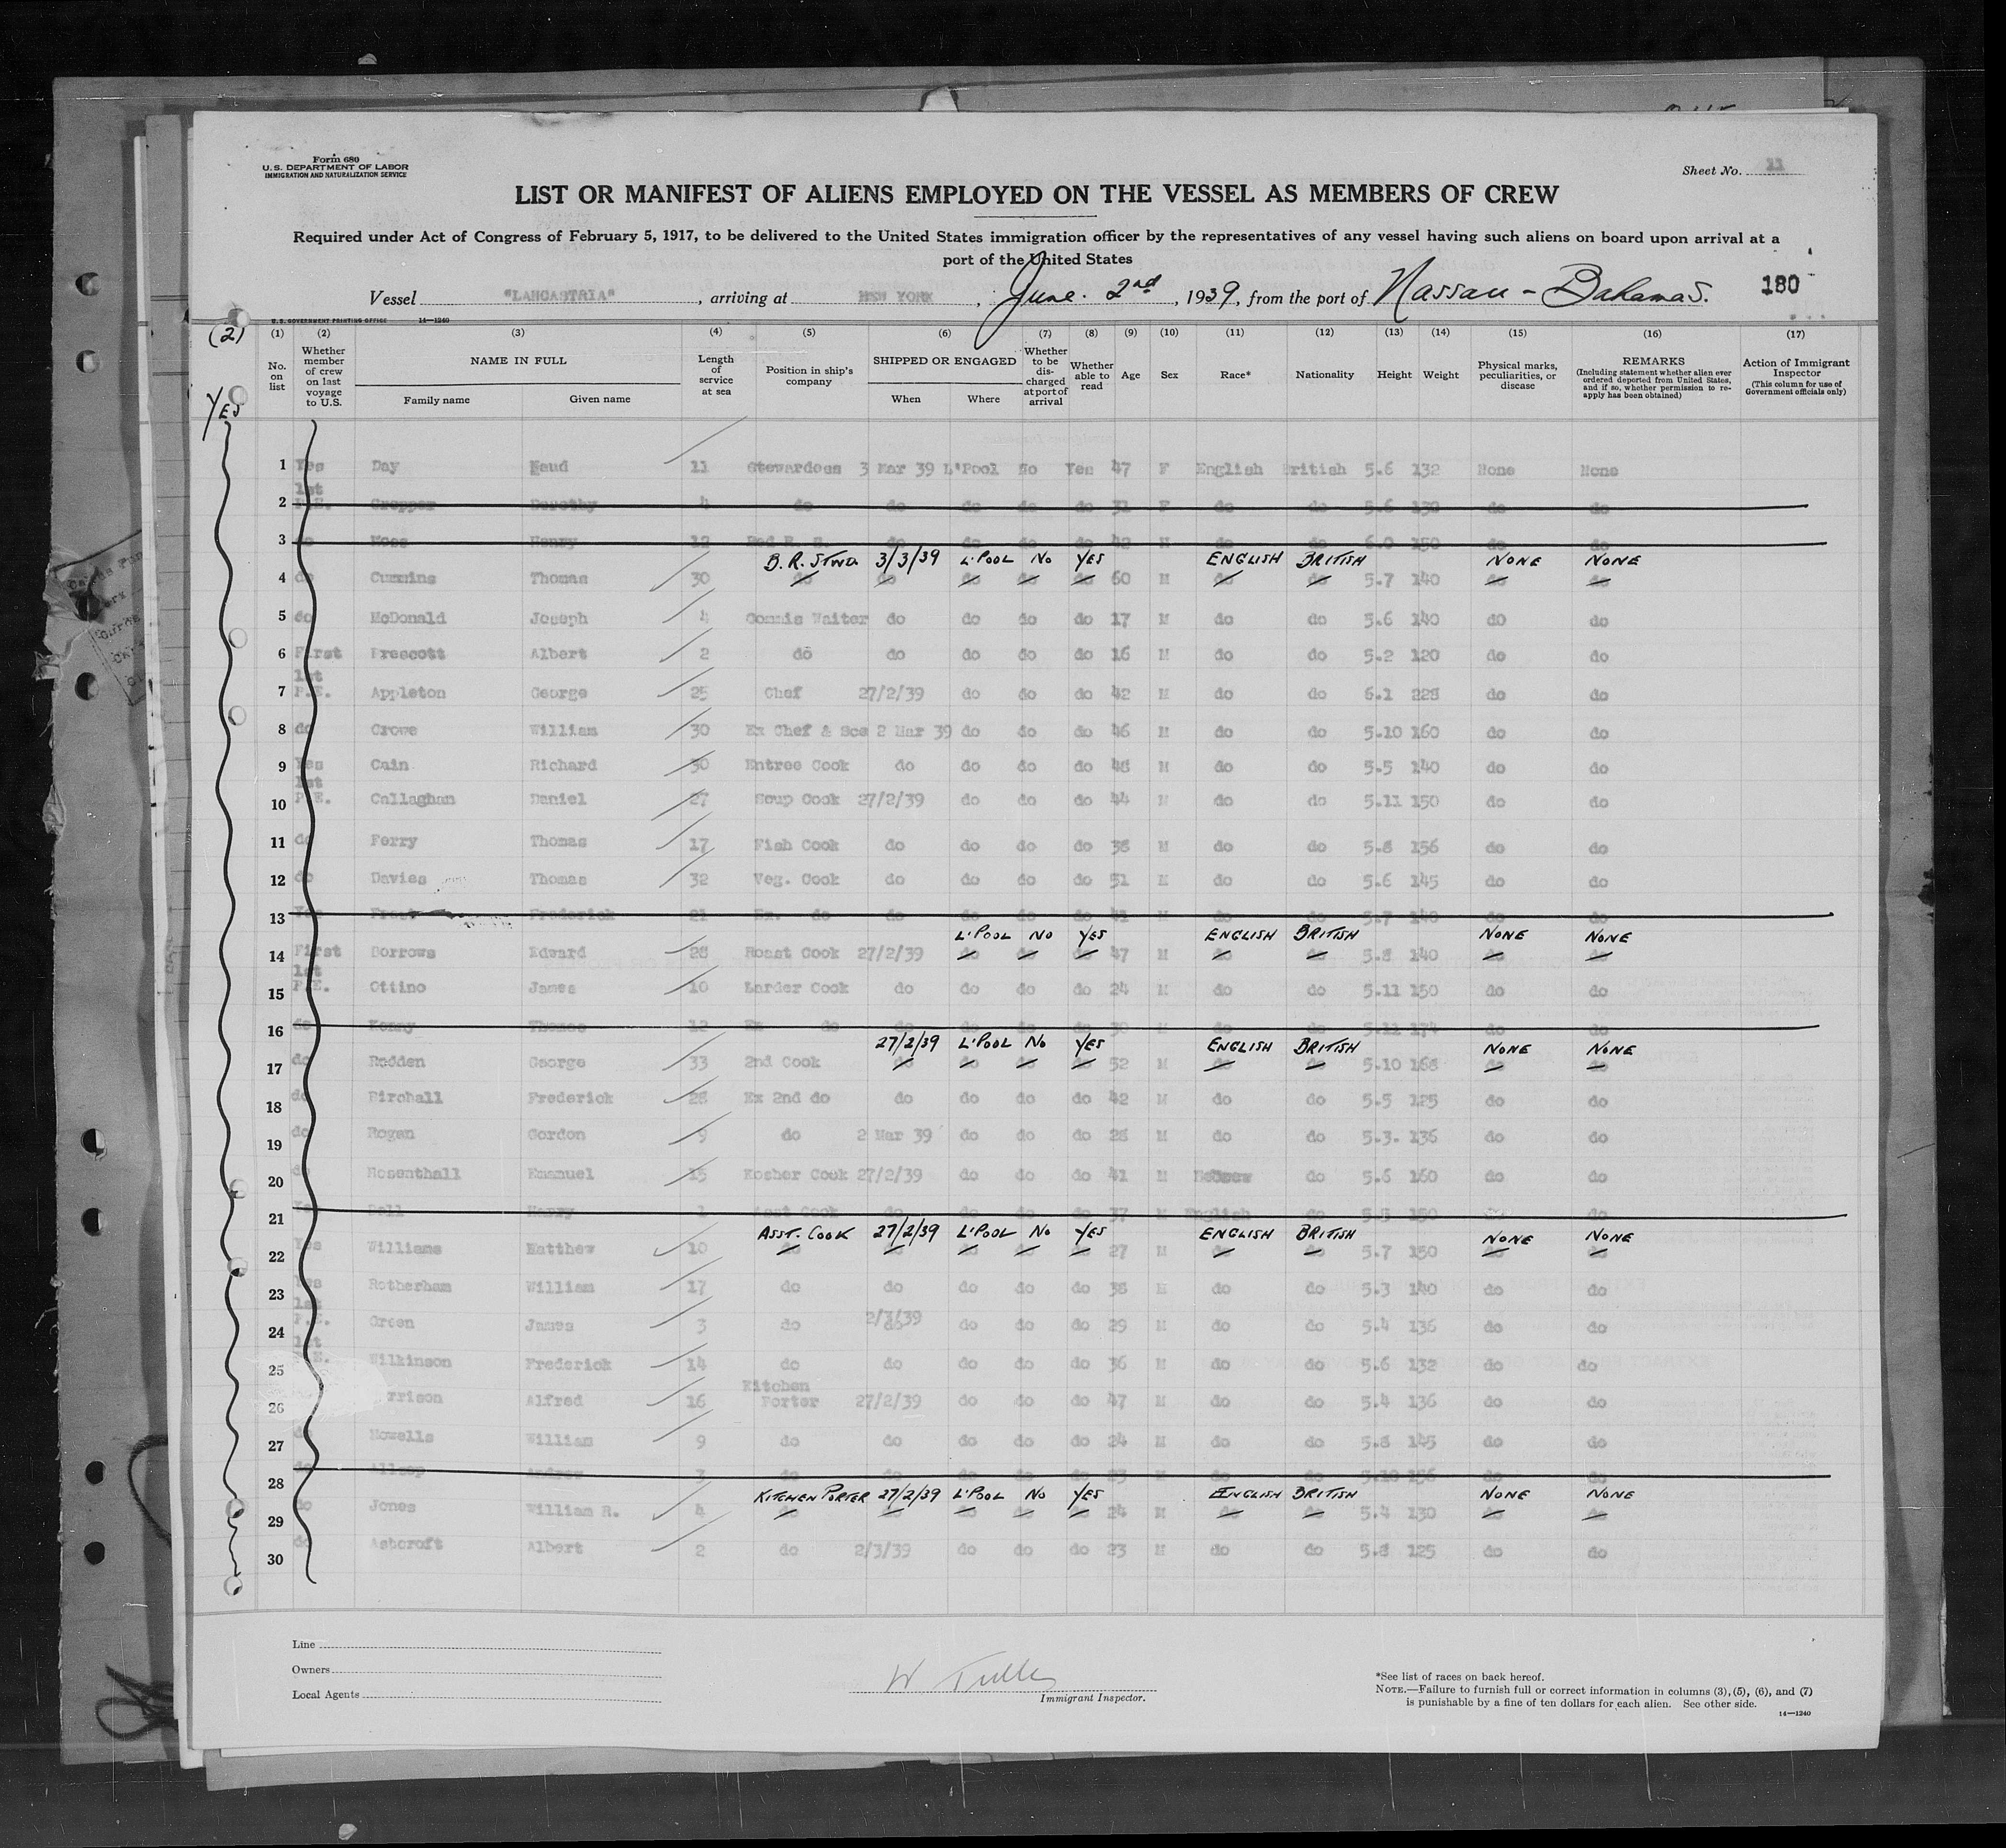 Form 680
U.S. DEPARTMENT OF LABOR
IMMIGRATION AND NATURALIZATION SERVICE
Sheet No. 11
LIST OR MANIFEST OF ALIENS EMPLOYED ON THE VESSEL AS MEMBERS OF CREW
Required under Act of Congress of February 5, 1917, to be delivered to the United States immigration officer by the representatives of any vessel having such aliens on board upon arrival at a
port of the United States
Vessel "LANCASTRIA", arriving at NEW YORK, June. 2nd, 1939, from the port of Nassau - Bahamas. 180
U.S. GOVERNMENT PRINTING OFFICE 14—1240
(2) (1) (2) (3) (4) (5) (6) (7) (8) (9) (10) (11) (12) (13) (14) (15) (16) (17)
No. on list
Whether member of crew on last voyage to U.S.
NAME IN FULL
Family name
Given name
Length of service at sea
Position in ship's company
SHIPPED OR ENGAGED
When
Where
Whether to be discharged at port of arrival
Whether able to read
Age
Sex
Race*
Nationality
Height
Weight
Physical marks, peculiarities, or disease
REMARKS
(Including statement whether alien ever ordered deported from United States, and if so, whether permission to reapply has been obtained)
Action of Immigrant Inspector
(This column for use of Government officials only)
YES
1 Yes Day Maud 11 Stewardess 3 Mar 39 L'Pool No Yes 47 F English British 5.6 132 None None
1st
2 P.E. Cropper Dorothy 4 do do do do do 31 F do do 5.6 130 do do
3 do Moss Henry 12 Bed R. S. do do do do 42 M do do 6.0 150 do do
B.R. STWD 3/3/39 L'POOL NO YES ENGLISH BRITISH NONE NONE
4 do Cummins Thomas 30 do do do do do 60 M do do 5.7 140 do do
5 do McDonald Joseph 4 Commis Waiter do do do do 17 M do do 5.6 140 do do
6 First Prescott Albert 2 do do do do do 16 M do do 5.2 120 do do
1st
7 P.E. Appleton George 25 Chef 27/2/39 do do do 42 M do do 6.1 228 do do
8 do Crowe William 30 Ex Chef & Sce 2 Mar 39 do do do 46 M do do 5.10 160 do do
9 Yes Cain Richard 30 Entree Cook do do do do 48 M do do 5.5 140 do do
1st
10 P.E. Callaghan Daniel 27 Soup Cook 27/2/39 do do do 44 M do do 5.11 150 do do
11 do Ferry Thomas 17 Fish Cook do do do do 38 M do do 5.8 156 do do
12 do Davies Thomas 32 Veg. Cook do do do do 51 M do do 5.6 145 do do
13 Yes Frost Frederick 21 Ex. do do do do do 41 M do do 5.7 140 do do
L'POOL NO YES ENGLISH BRITISH NONE NONE
14 First Borrows Edward 28 Roast Cook 27/2/39 do do do 47 M do do 5.8 140 do do
1st
15 P.E. Ottino James 10 Larder Cook do do do do 24 M do do 5.11 150 do do
16 do Kenny Thomas 12 Ex do do do do do 30 M do do 5.11 174 do do
27/2/39 L'POOL NO YES ENGLISH BRITISH NONE NONE
17 do Rodden George 33 2nd Cook do do do do 52 M do do 5.10 168 do do
18 do Birchall Frederick 28 Ex 2nd do do do do do 42 M do do 5.5 125 do do
19 do Rogan Gordon 9 do 2 Mar 39 do do do 28 M do do 5.3. 136 do do
20 do Rosenthall Emanuel 15 Kosher Cook 27/2/39 do do do 41 M Hebrew do 5.6 160 do do
21 Yes Bell Henry Asst Cook do do do do 37 M English do 5.5 150 do do
ASST. COOK 27/2/39 L'POOL NO YES ENGLISH BRITISH NONE NONE
22 Yes Williams Matthew 10 do do do do do 27 M do do 5.7 150 do do
23 Yes Rotherham William 17 do do do do do 38 M do do 5.3 140 do do
1st
24 P.E. Green James 3 do 2/3/39 do do do 29 M do do 5.4 136 do do
1st
25 P.E. Wilkinson Frederick 14 do do do do do 36 M do do 5.6 132 do do
Kitchen
26 rrison Alfred 16 Porter 27/2/39 do do do 47 M do do 5.4 136 do do
27 do Howells William 9 do do do do do 24 M do do 5.8 145 do do
28 do Allsop Andrew 3 do do do do do 23 M do do 5.10 156 do do
KITCHEN PORTER 27/2/39 L'POOL NO YES ENGLISH BRITISH NONE NONE
29 do Jones William R. 4 do do do do do 24 M do do 5.4 130 do do
30 do Ashcroft Albert 2 do 2/3/39 do do do 23 M do do 5.8 125 do do
Line
Owners
Local Agents
Immigrant Inspector.
*See list of races on back hereof.
NOTE.—Failure to furnish full or correct information in columns (3), (5), (6), and (7)
is punishable by a fine of ten dollars for each alien. See other side.
14—1240